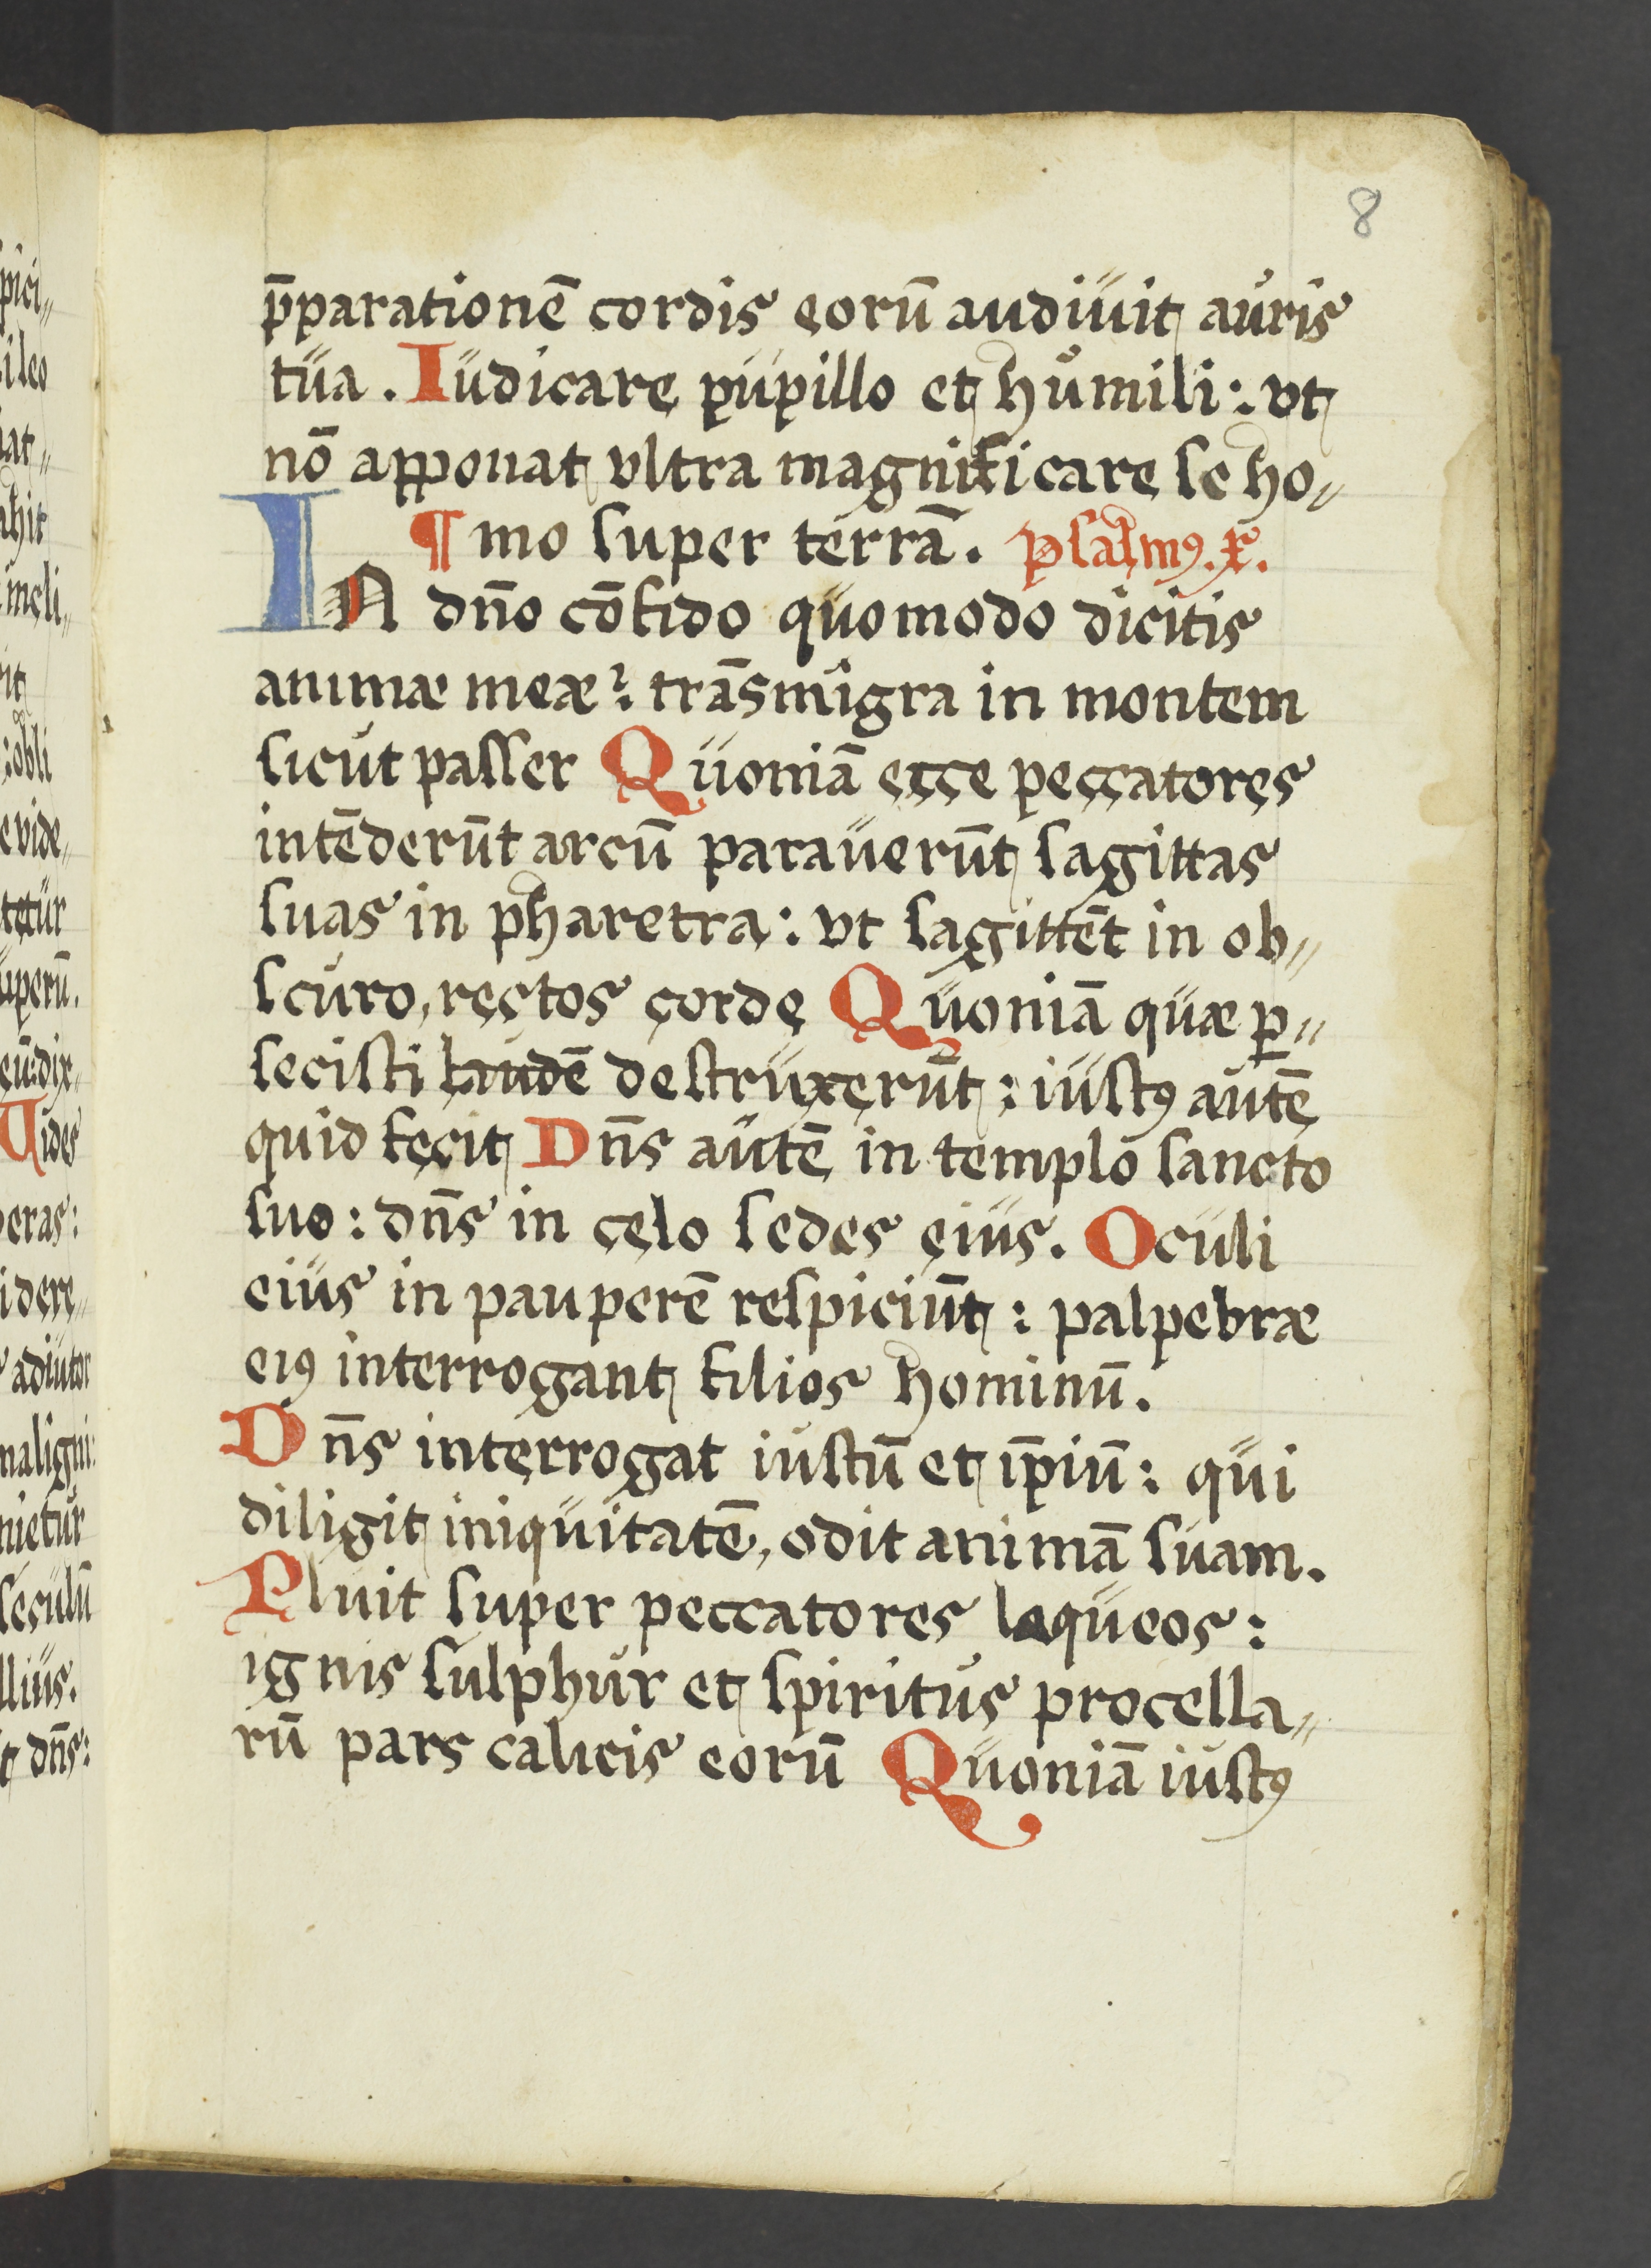 8
p̄parationē cordis eorū audiuit auris
tua. Iudicare pupillo et humili: vt
nō apponat vltra magnificare se ho„
¶ mo super terrā. psalmꝰ. x̄.
IN dn̄o cōfido quomodo dicitis
animæ meæ? trāsmigra in montem
sicut passer Quoniā ecce peccatores
intēderūt arcū parauerūt sagittas
suas in pharetra: vt sagittēt in ob„
scuro, rectos corde Quoniā quæ p„
fecisti laudē destruxerūt: iustꝰ autē
quid fecit Dn̄s autē in templo sancto
suo: dn̄s in celo sedes eius. Oculi
eius in pauperē respiciūt: palpebræ
eiꝰ interrogant filios hominū.
Dn̄s interrogat iustū et ip̄iū: qui
diligit iniquitatē, odit animā suam.
Pluit super peccatores laqueos:
ignis sulphur et spiritus procella„
rū pars calicis eorū Quoniā iustꝰ